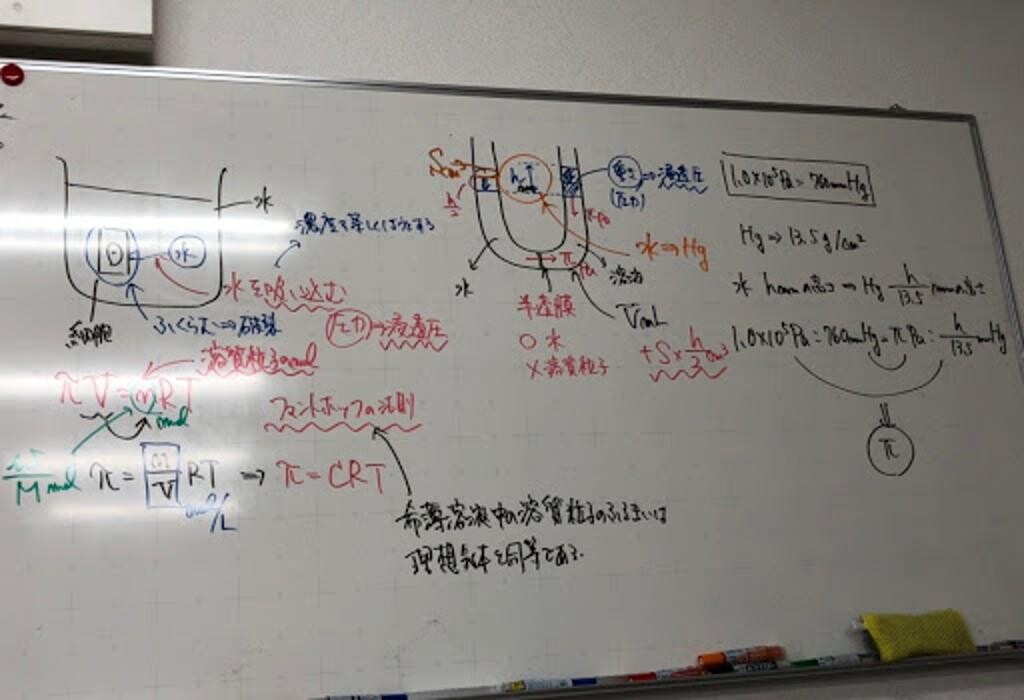 水
濃度を等しくしようとする
水
水を吸い込む
細胞
ふくらむ⇒破裂
圧力⇒浸透圧
溶質粒子のmol
πV=nRT
mol
ファントホッフの法則
w/M mol
π=n/V RT ⇒ π=CRT
mol/L
希薄溶液中の溶質粒子のふるまいは
理想気体と同等である.
Scm²
h
h/2
重さ⇒浸透圧
(圧力)
π Pa
水⇒Hg
π Pa
水
溶液
半透膜
VmL
○水
×溶質粒子
+S×h/2 cm³
1.0×10⁵Pa=760mmHg
Hg⇒13.5g/cm³
水 hmmの高さ⇒Hg h/13.5 mmの高さ
1.0×10⁵Pa:760mmHg=πPa:h/13.5 mmHg
π